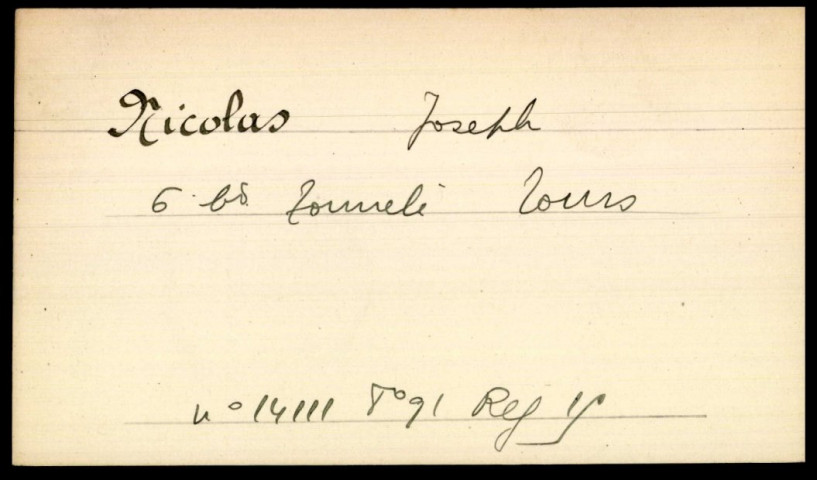 Nicolas Joseph
6 bd Tonnelé Tours
n° 14111 F° 91 Reg